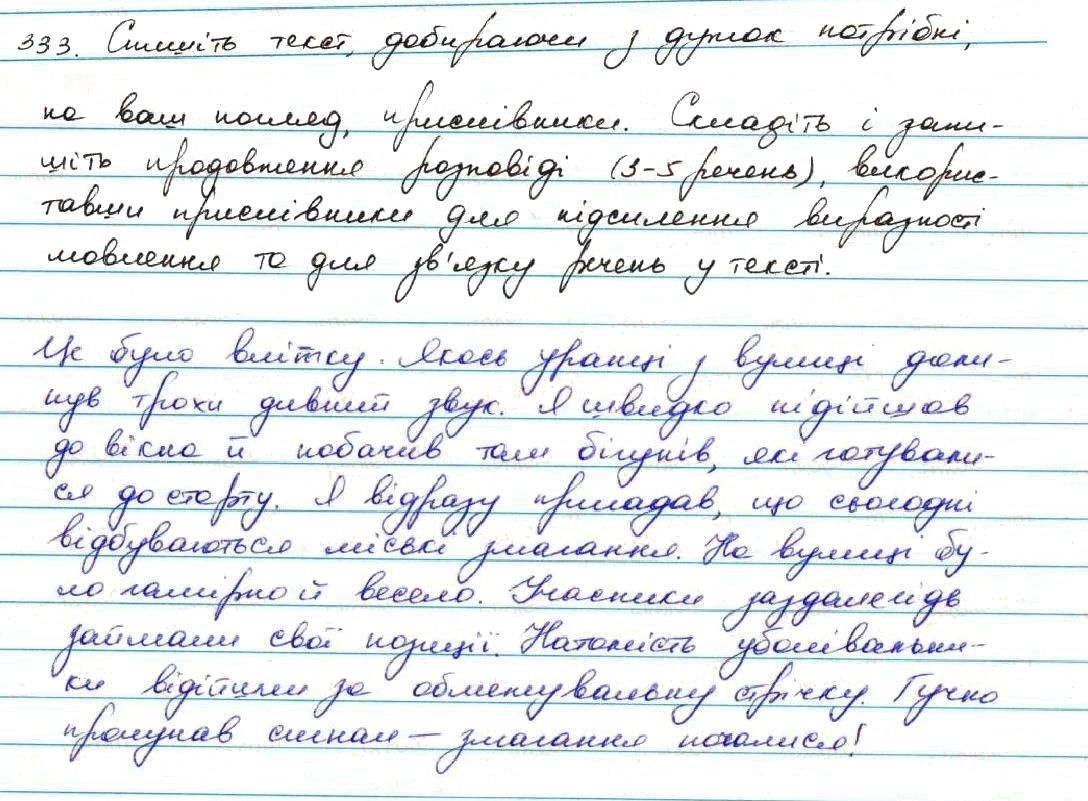 333. Спишіть текст, добираючи з дужок потрібні,
на ваш погляд, прислівники. Складіть і запи-
шіть продовження розповіді (3-5 речень), викорис-
тавши прислівники для підсилення виразності
мовлення та для зв'язку речень у тексті.
Це було влітку. Якось уранці з вулиці доли-
нув трохи дивний звук. Я швидко підійшов
до вікна й побачив там бігунів, які готували-
ся до старту. Я відразу пригадав, що сьогодні
відбуваються міські змагання. На вулиці бу-
ло гамірно й весело. Учасники заздалегідь
займали свої позиції. Натомість уболівальни-
ки відійшли за обмежувальну стрічку. Гучно
пролунав сигнал — змагання почалися!